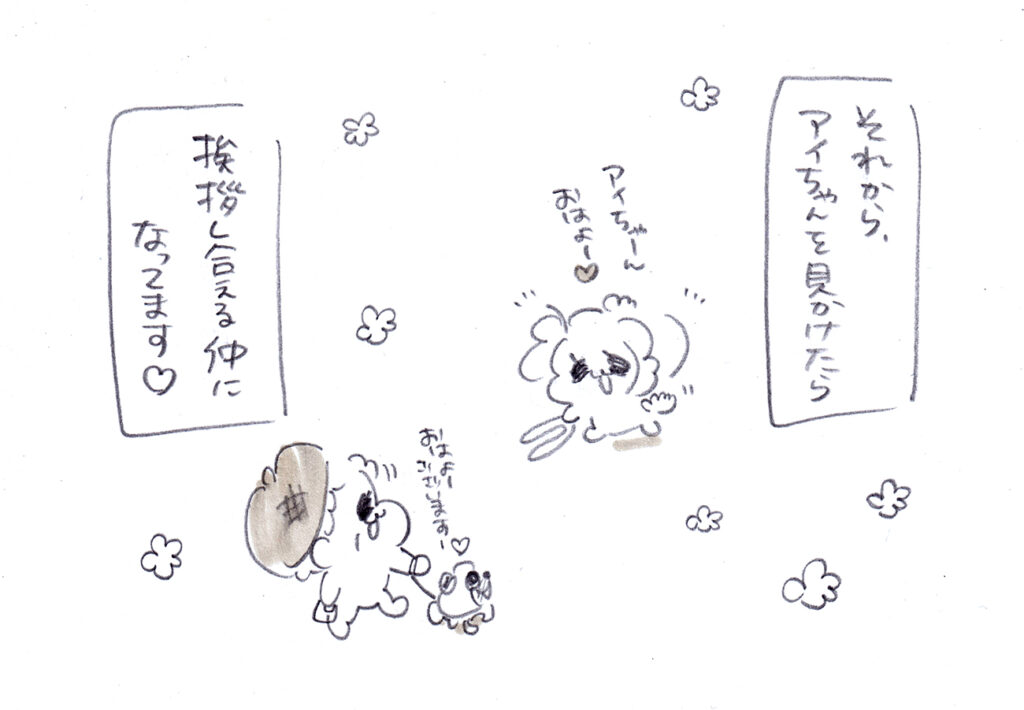 それから、
アイちゃんを見かけたら
アイちゃーん
おはよー♥
おはよー
ございますー♡
挨拶し合える仲に
なってます♡